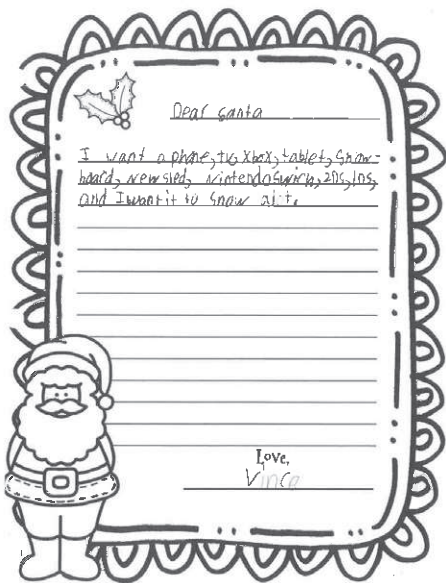 Dear Santa
I want a phone, tv, Xbox, tablet, Snow-
board, new sled, Nintendo Swich, 2Ds,
and I want it to Snow
Love,
Vince